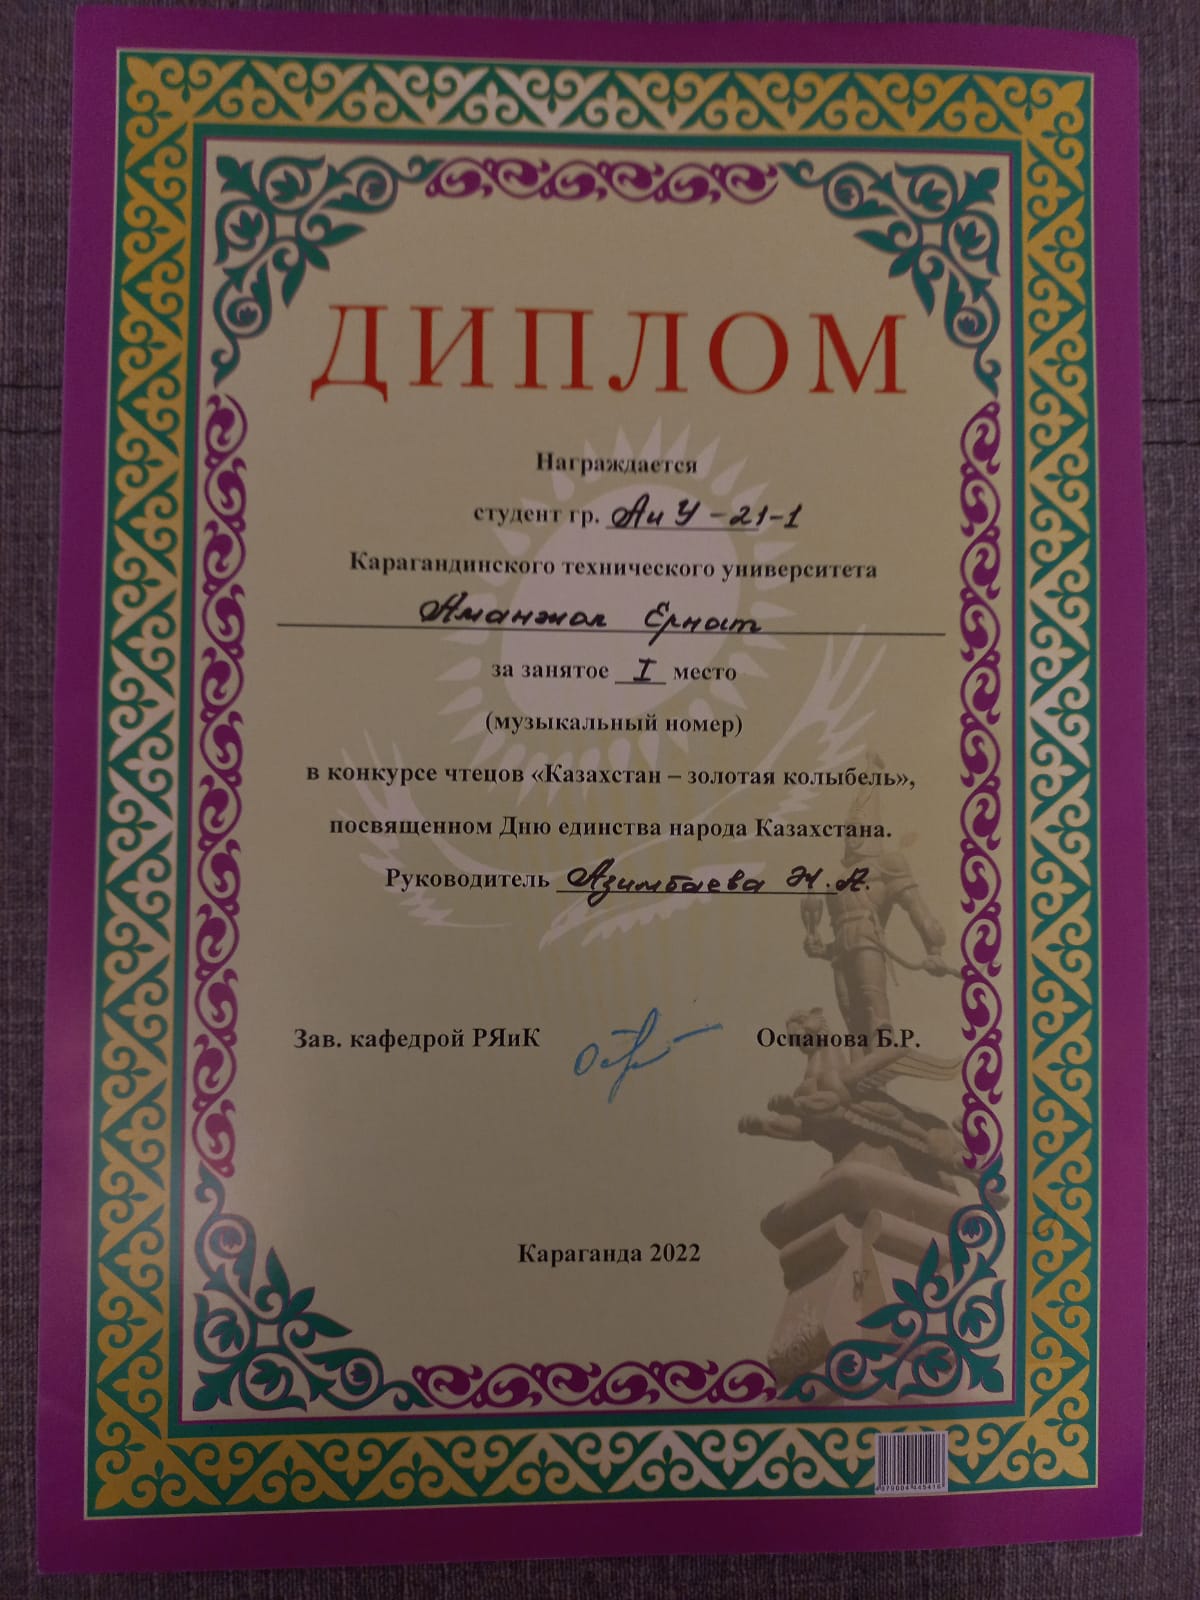 ДИПЛОМ
Награждается
студент гр. АиУ-21-1
Карагандинского технического университета
Аманжол Ернат
за занятое I место
(музыкальный номер)
в конкурсе чтецов «Казахстан – золотая колыбель»,
посвященном Дню единства народа Казахстана.
Руководитель Азимбаева Ж.А.
Зав. кафедрой РЯиК Оспанова Б.Р.
Караганда 2022